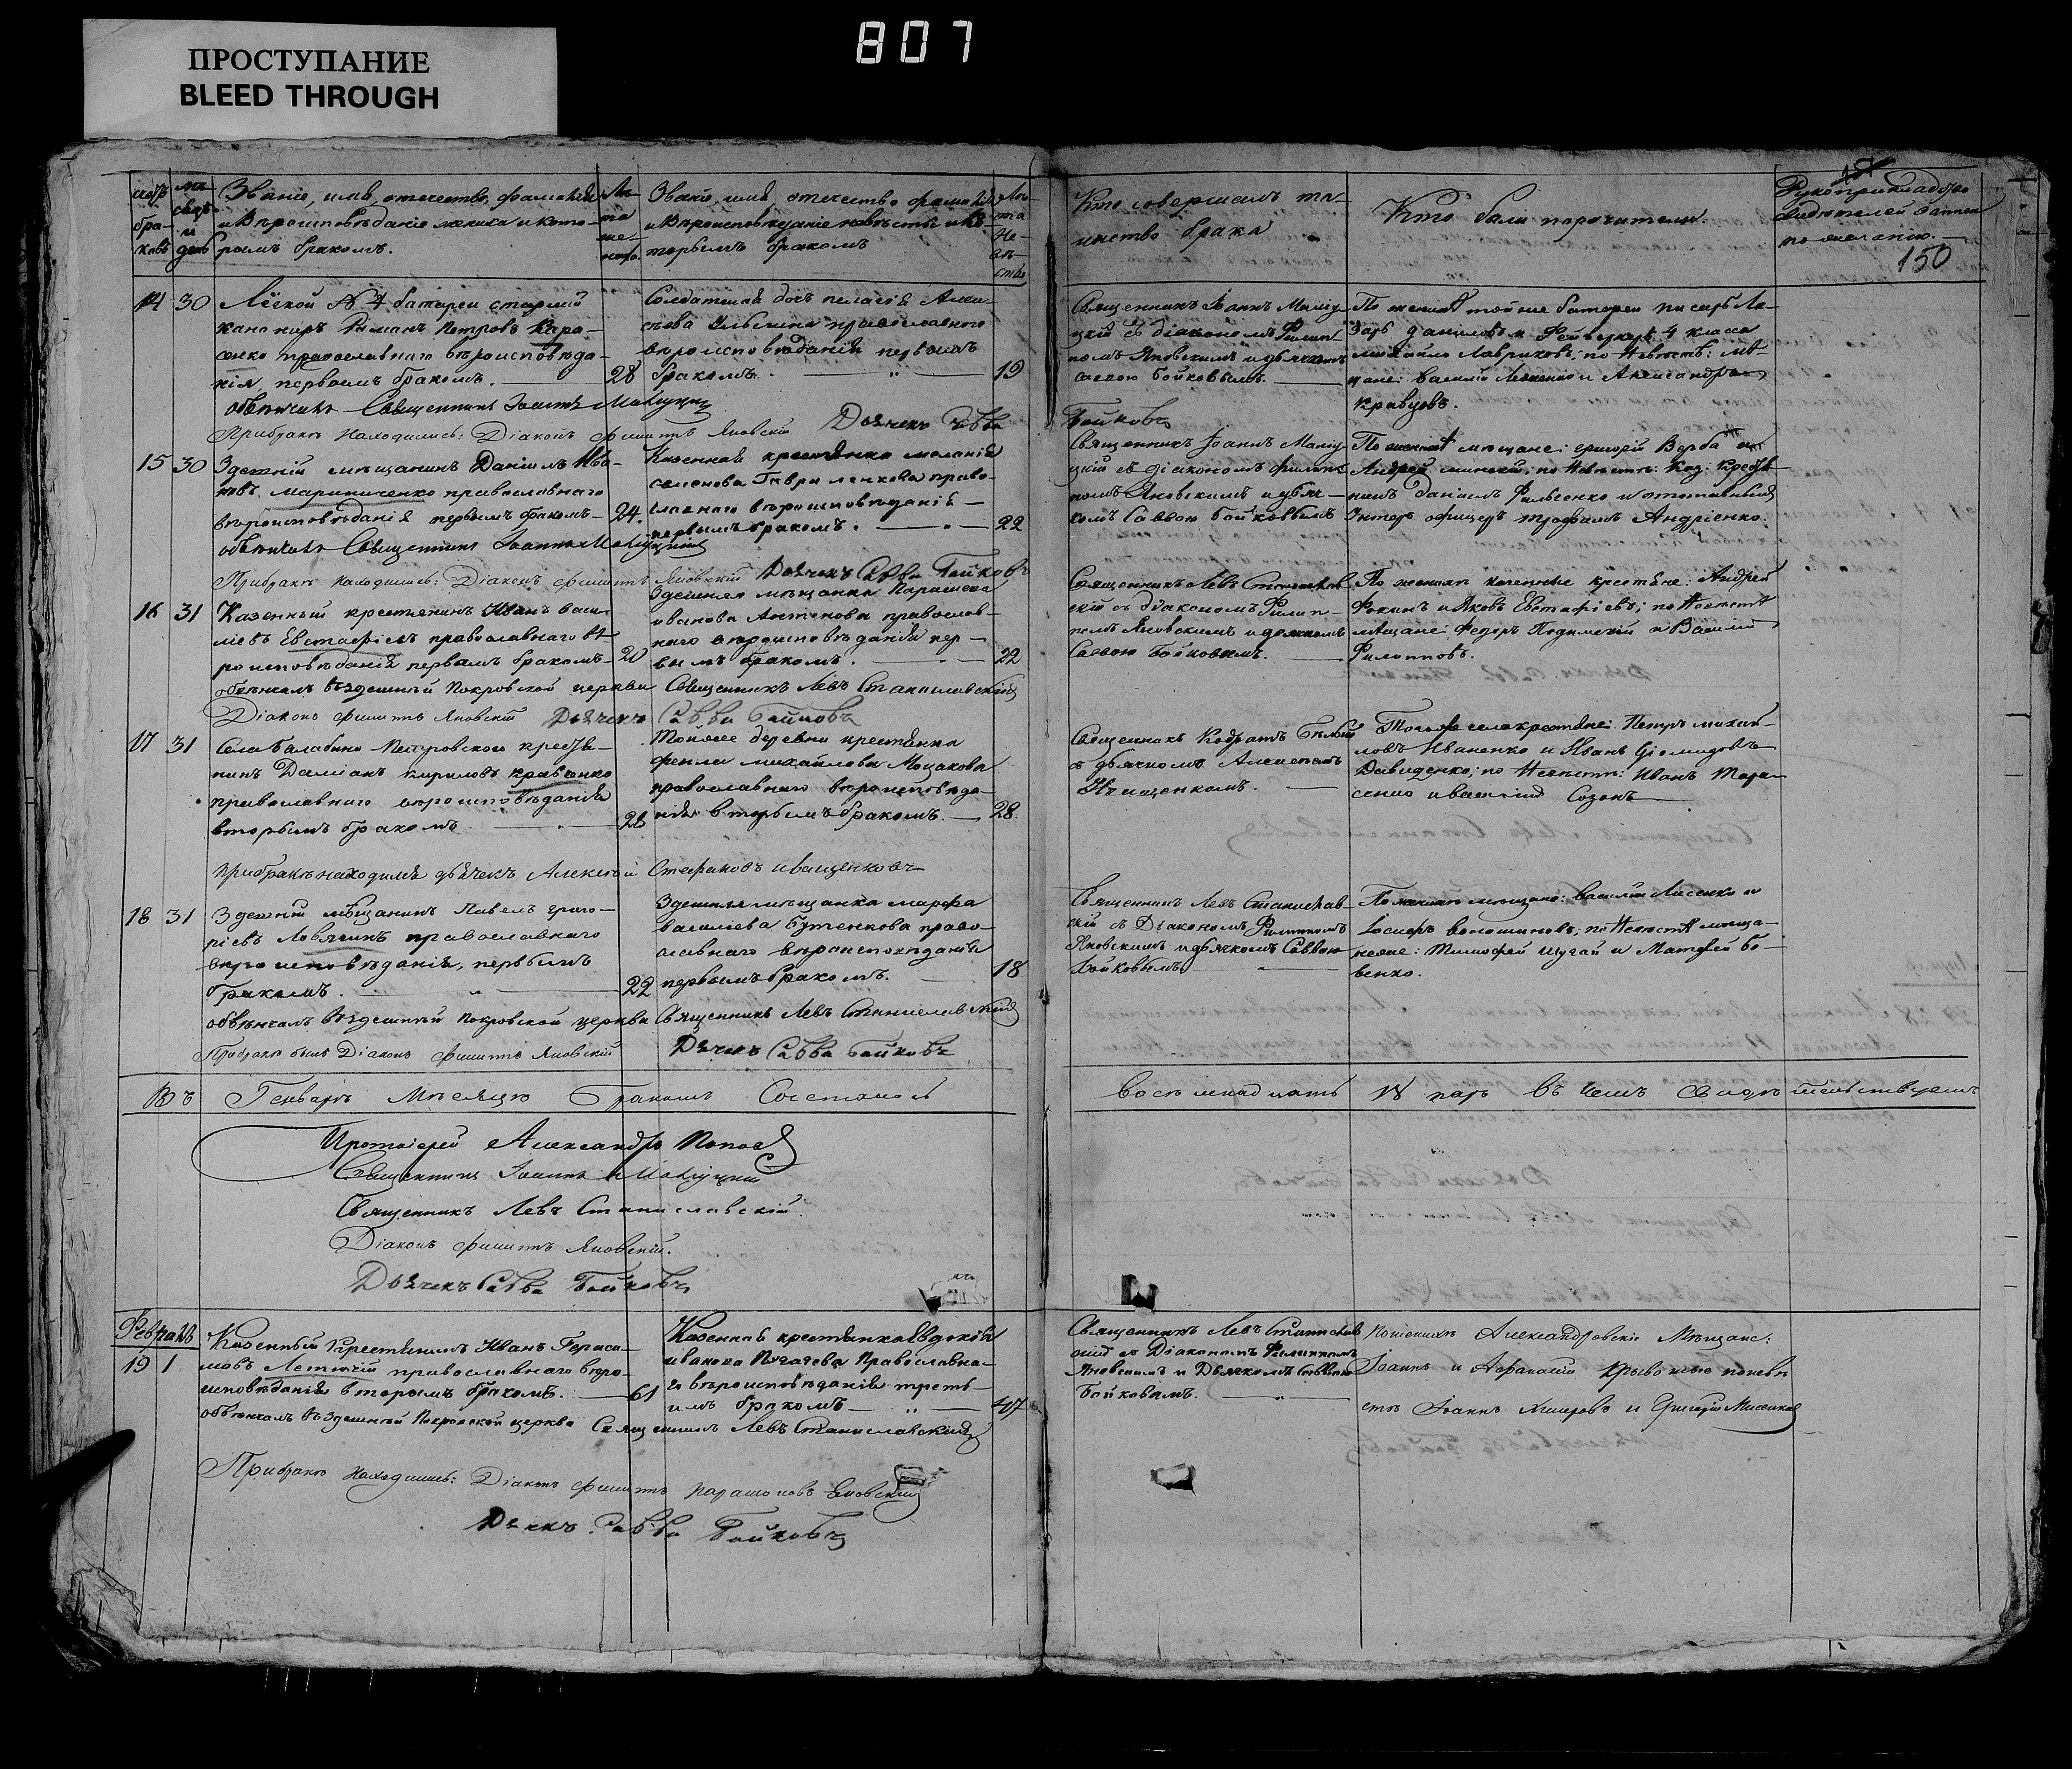 807
ПРОСТУПАНИЕ
BLEED THROUGH
Званіе, имя, отечество, фамилія
и вѣроисповѣданіе жениха и кото-
рымъ бракомъ.
Званіе, имя, отечество фамилія
и вѣроисповѣданіе невѣсты и ко-
торымъ бракомъ
Кто совершалъ та-
инство брака
Кто были поручители
Рукоприкладство
свидѣтелей записи
по желанію.
150
14 30 Легкой № 4 батареи старшій
канониръ Романъ Петровъ Кара-
сенко православнаго вѣроисповѣда-
нія, первымъ бракомъ. 28
Солдатская дочь Пелагія Алек-
сѣева православнаго
вѣроисповѣданія первымъ
бракомъ. 19
Священникъ Іоаннъ Малиц-
кій съ діакономъ Филип-
помъ Яновскимъ и дьячкомъ
Саввою Бойковымъ.
По женихѣ той же батареи писарь Ла-
зарь Даниловъ и Фейерверкеръ 4 класса
Михайло Лавриковъ; по невѣстѣ: мѣ-
щане: Василій и Александръ
Кравцовъ.
обвѣнчалъ Священникъ Іоаннъ Малицкій
При бракѣ находились: Діаконъ Филиппъ Яновскій Дьячекъ Савва Бойковъ
15 30 Здешній мѣщанинъ Даніилъ Ива-
новъ Мариниченко православнаго
вѣроисповѣданія первымъ бракомъ 24.
Казенная крестьянка Меланія
Семенова Гавриленкова право-
славнаго вѣроисповѣданія
первымъ бракомъ. 22
Священникъ Іоаннъ Малиц-
кій съ діакономъ Филип-
помъ Яновскимъ и дьяч-
комъ Саввою Бойковымъ
По женихѣ мѣщане: Григорій Верба и
Андрей; по невѣстѣ: Каз: Крестья-
нинъ Даніилъ и отставный
Унтеръ офицеръ Трофимъ Андріенко.
обвѣнчалъ Священникъ Іоаннъ Малицкій
При бракѣ находились: Діаконъ Филиппъ Яновскій Дьячекъ Савва Бойковъ
16 31 Казенный крестьянинъ Иванъ Васи-
ліевъ Евстафіевъ православнаго вѣ-
роисповѣданія первымъ бракомъ 20
Здешняя мѣщанка Параскева
Иванова Антонова православ-
наго вѣроисповѣданія пер-
вымъ бракомъ. 22
Священникъ Левъ Станиславс-
кій съ діакономъ Филип-
помъ Яновскимъ и дьячкомъ
Саввою Бойковымъ.
По женихѣ казенные крестьяне: Андрей
Фокинъ и Яковъ Евстафіевъ; по невѣстѣ
мѣщане: Федоръ и Василій
Филипповъ.
обвѣнчалъ въ здешней Покровской церкви Священникъ Левъ Станиславскій
Діаконъ Филиппъ Яновскій Дьячекъ Савва Бойковъ
17 31 Села Балабино Петровского крестья-
нинъ Даміанъ Кириловъ Кравченко
православнаго вѣроисповѣданія
вторымъ бракомъ. 28
Той же деревни крестьянка
Фекла Михайлова Мошакова
православнаго вѣроисповѣда-
нія вторымъ бракомъ. 28.
Священникъ Кодратъ
съ дьячкомъ Алексѣемъ
Иващенкомъ.
Того же села крестьяне: Петръ Михай-
ловъ Иваненко и Иванъ Діомидовъ
Давиденко; по невѣстѣ: Иванъ Тара-
сенко и Василій Созонъ
При бракѣ находился дьячекъ Алексѣй Стефановъ Иващенковъ
18 31 Здешній мѣщанинъ Павелъ Григо-
ріевъ Ловягинъ православнаго
вѣроисповѣданія, первымъ
бракомъ. 22
Здешняя мѣщанка Марфа
Василіева Бутенкова право-
славнаго вѣроисповѣданія
первымъ бракомъ. 18
Священникъ Левъ Станислав-
скій съ Діакономъ Филиппомъ
Яновскимъ и дьячкомъ Саввою
Бойковымъ
По женихѣ мѣщане: Василій Лисенко и
Іосифъ Волошиновъ; по невѣстѣ мѣща-
не: Тимофей Шугай и Матфей Бо-
венко.
обвѣнчалъ въ здешней Покровской церкви Священникъ Левъ Станиславскій
При бракѣ былъ Діаконъ Филиппъ Яновскій Дьячекъ Савва Бойковъ
Въ Генварѣ Мѣсяцѣ Бракомъ Сочеталось восемнадцать 18 паръ въ чемъ свидѣтельствуемъ
Протоіерей Александръ Поповъ
Священникъ Іоаннъ Малицкій
Священникъ Левъ Станиславскій.
Діаконъ Филиппъ Яновскій.
Дьячекъ Савва Бойковъ
Февраль
19 1 Казенный Крестьянинъ Иванъ Гераси-
мовъ православнаго вѣро-
исповѣданія вторымъ бракомъ. 61
Казенная крестьянка Евдокія
Иванова Пугачева Православна-
го вѣроисповѣданія треть-
имъ бракомъ 47
Священникъ Левъ Станислав-
скій съ Діакономъ Филиппомъ
Яновскимъ и Дьячкомъ Саввою
Бойковымъ.
По женихѣ Александровскіе Мѣщане:
Іоаннъ и Афанасій по невѣ-
стѣ Іоаннъ и Григорій
обвѣнчалъ въ здешней Покровской церкви Священникъ Левъ Станиславскій
При бракѣ находились: Діаконъ Филиппъ Яновскій
Дьячекъ Савва Бойковъ